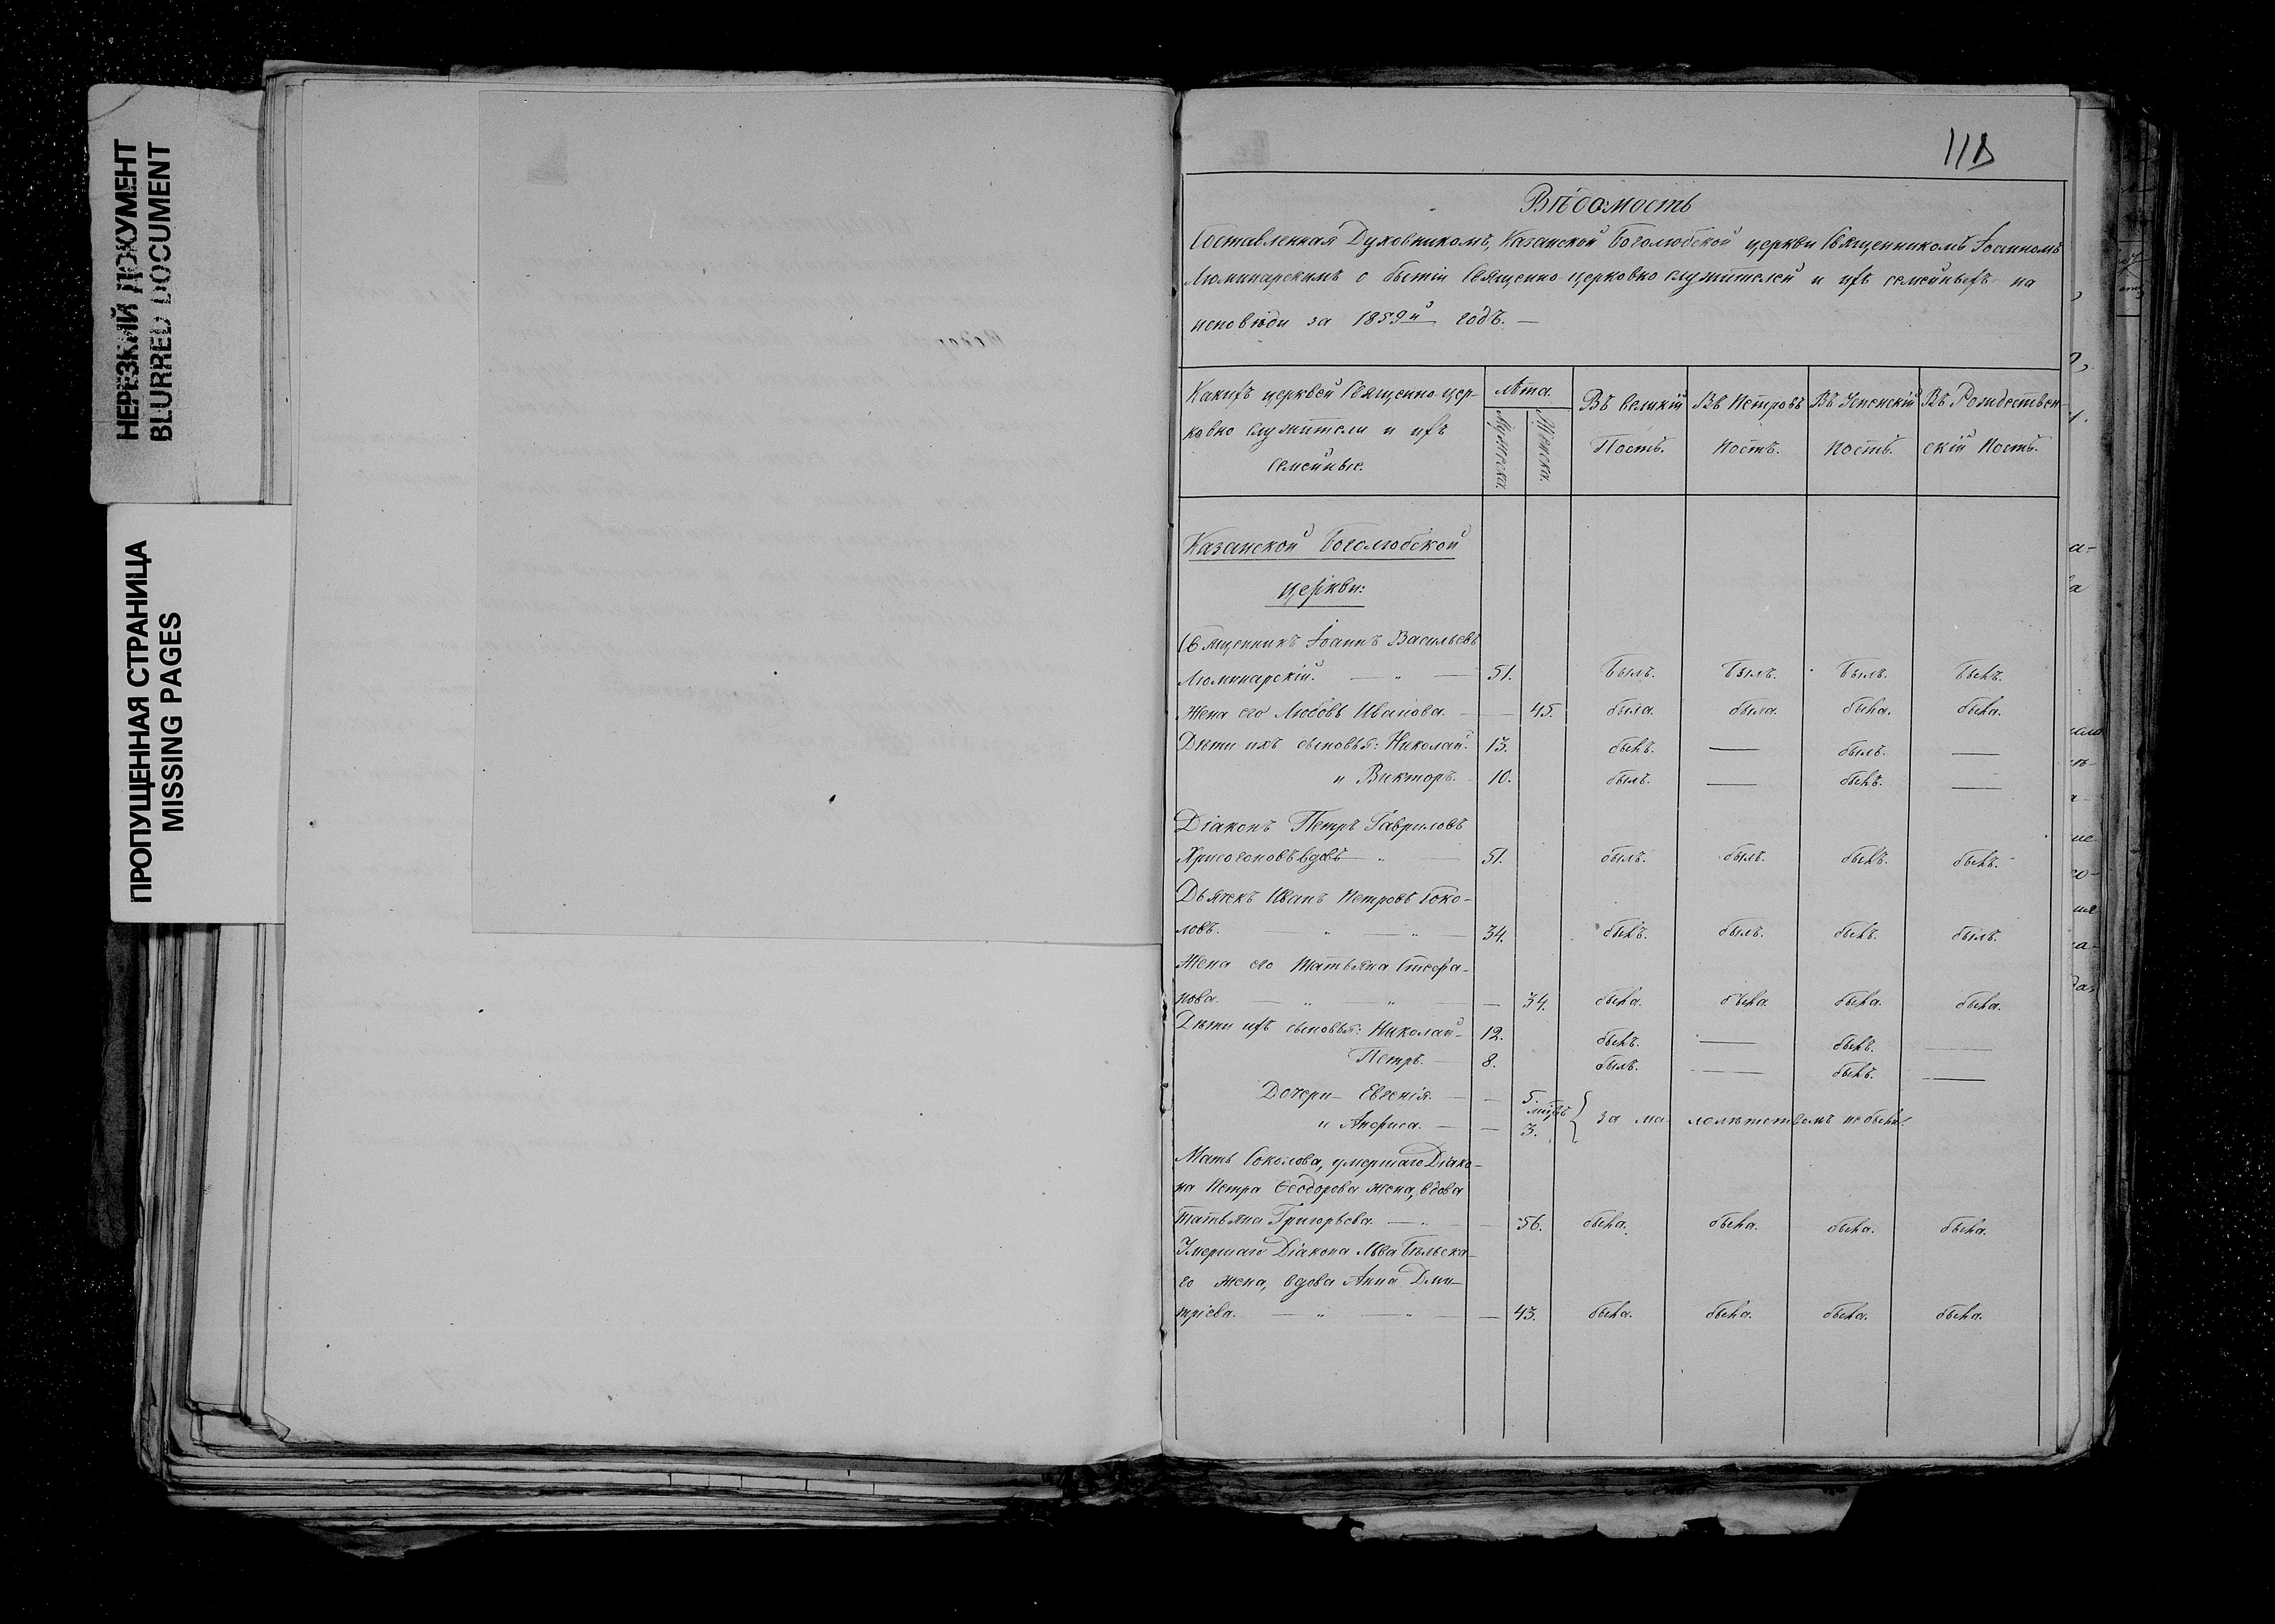 НЕРЕЗКИЙ ДОКУМЕНТ
BLURRED DOCUMENT
ПРОПУЩЕННАЯ СТРАНИЦА
MISSING PAGES
118
Вѣдомость
Составленная Духовникомъ, Казанской Боголюбской церкви Священникомъ Іоанномъ
Люминарскимъ о бытіи Священно-церковно служителей и ихъ семейныхъ на
исповѣди за 1859й годъ. —
Какихъ церквей Священно-цер-
ковно служители и ихъ
Семейные.
Лѣта.
Мужеска.
Женска.
Въ Великій
Постъ.
Въ Петровъ
Постъ.
Въ Успенскій
Постъ.
Въ Рождествен-
скій Постъ.
Казанской Боголюбской
церкви:
Священникъ Іоаннъ Васильевъ
Люминарскій. — „ — 51. Былъ. Былъ. Былъ. Былъ.
Жена его Любовь Иванова. — — 45. была. была. была. была.
Дѣти ихъ сыновья: Николай. 13. былъ. — былъ. —
и Викторъ. 10. былъ. — былъ. —
Діаконъ Петръ Гавриловъ
Хрисогоновъ вдовъ — „ — 51. былъ. былъ. былъ. былъ.
Дьячекъ Иванъ Петровъ Соко-
ловъ. — „ — „ — 34. былъ. былъ. былъ. былъ.
Жена его Татьяна Стефа-
нова. — „ — „ — — 34. была. была была. была.
Дѣти ихъ сыновья: Николай — 12. былъ. — былъ. —
Петръ. — 8. былъ. — былъ. —
Дочери — Евгенія. — — 5.
мцвъ
и Анфиса. — — 3. } за малолѣтствомъ не были.
Мать Соколова, умершаго Діако-
на Петра Ѳеодорова жена, вдова
Татьяна Григорьева. — „ — — 56. была. была. была. была.
Умершаго Діакона Льва Бѣльска-
го жена, вдова Анна Дми-
тріева. — „ — „ — — 43. была. была. была. была.